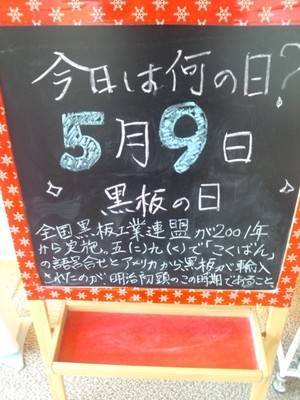 今日は何の日?
5月9日
黒板の日
全国黒板工業連盟が2001年
から実施。五(こ)九(く)で「こくばん」
の語呂合せとアメリカから黒板が輸入
されたのが、明治初頭のこの時期であること。